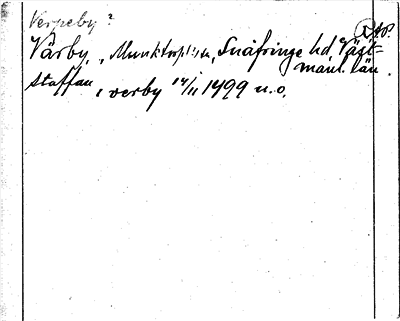 Verpeby?
Vårby, Munktorps sn, Snäfringe hd, Väst-
manl. län.
Staffan, verby 14/11 1499 u.o.